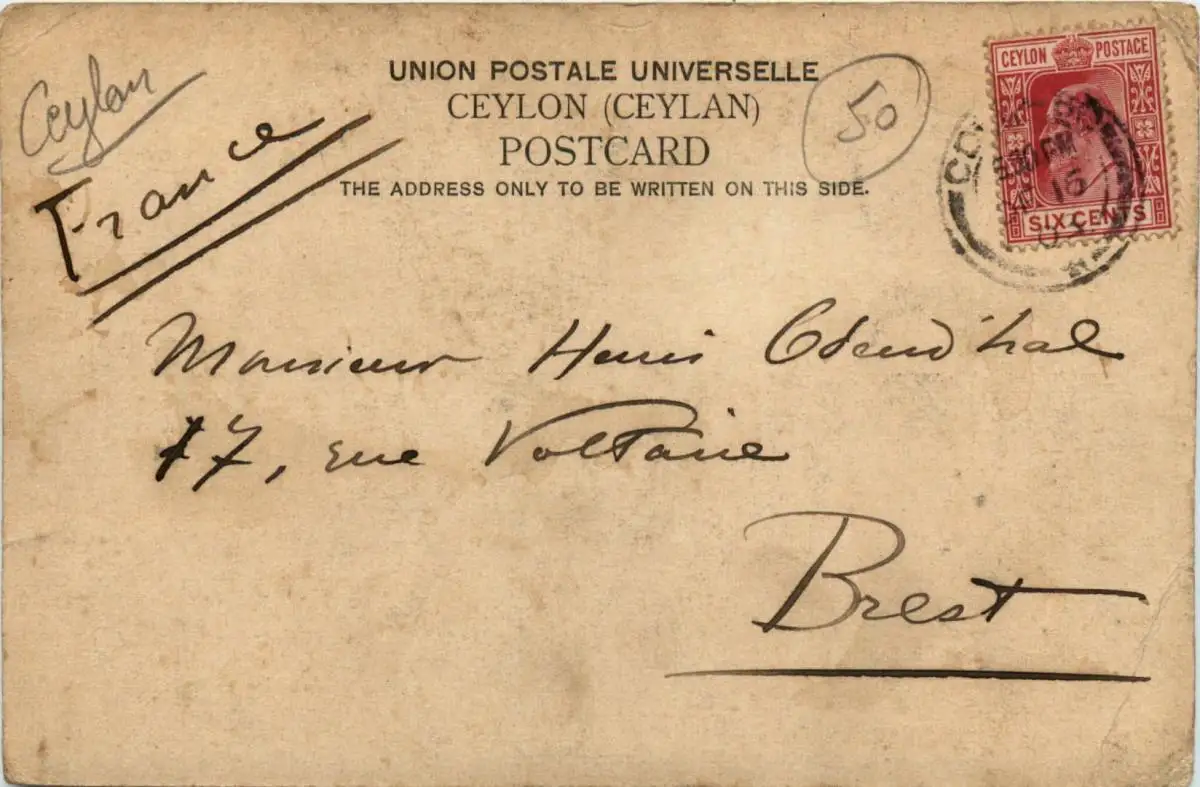 Ceylon
UNION POSTALE UNIVERSELLE
CEYLON (CEYLAN)
POSTCARD
THE ADDRESS ONLY TO BE WRITTEN ON THIS SIDE.
50
CEYLON POSTAGE
SIX CENTS
France
Monsieur Henri Odend'hal
17, rue Voltaire
Brest